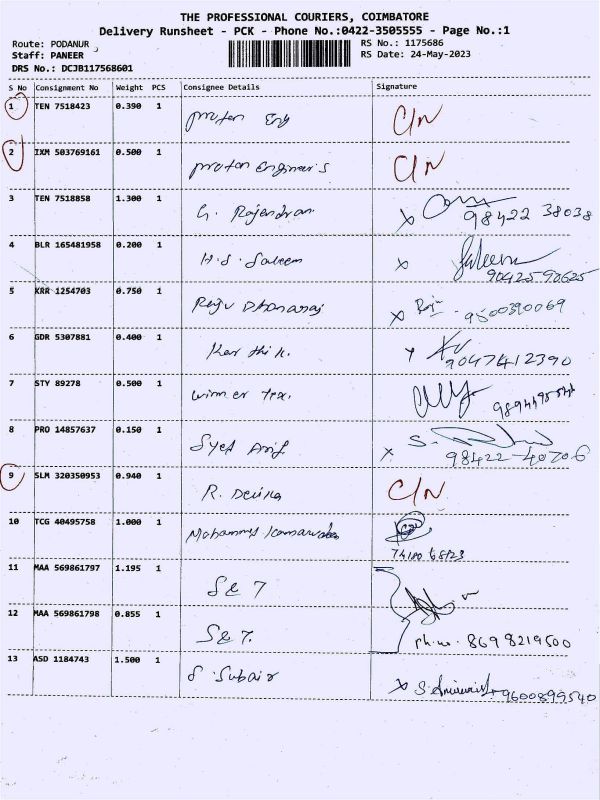 THE PROFESSIONAL COURIERS, COIMBATORE
Delivery Runsheet - PCK - Phone No.:0422-3505555 - Page No.:1
Route: PODANUR RS No.: 1175686
Staff: PANEER RS Date: 24-May-2023
DRS No.: DCJB117568601
S No Consignment No Weight PCS Consignee Details Signature
1 TEN 7518423 0.390 1 proton Eng C/N
2 IXM 503769161 0.500 1 proton Engineer's C/N
3 TEN 7518858 1.300 1 G. Rajendran x 98422 38038
4 BLR 165481958 0.200 1 H.S. Saleem x Saleem 90425 90625
5 KRR 1254703 0.750 1 Regu Dhanaraj x 9500390069
6 GDR 5307881 0.400 1 Karthik. 9047412390
7 STY 89278 0.500 1 winner tex.
8 PRO 14857637 0.150 1 Syed Arif x S. 98422-40706
9 SLM 320350953 0.940 1 R. C/N
10 TCG 40495758 1.000 1
11 MAA 569861797 1.195 1 S & T
12 MAA 569861798 0.855 1 S & T. ph.no. 8698219500
13 ASD 1184743 1.500 1 S. Subair x S. 9600899540